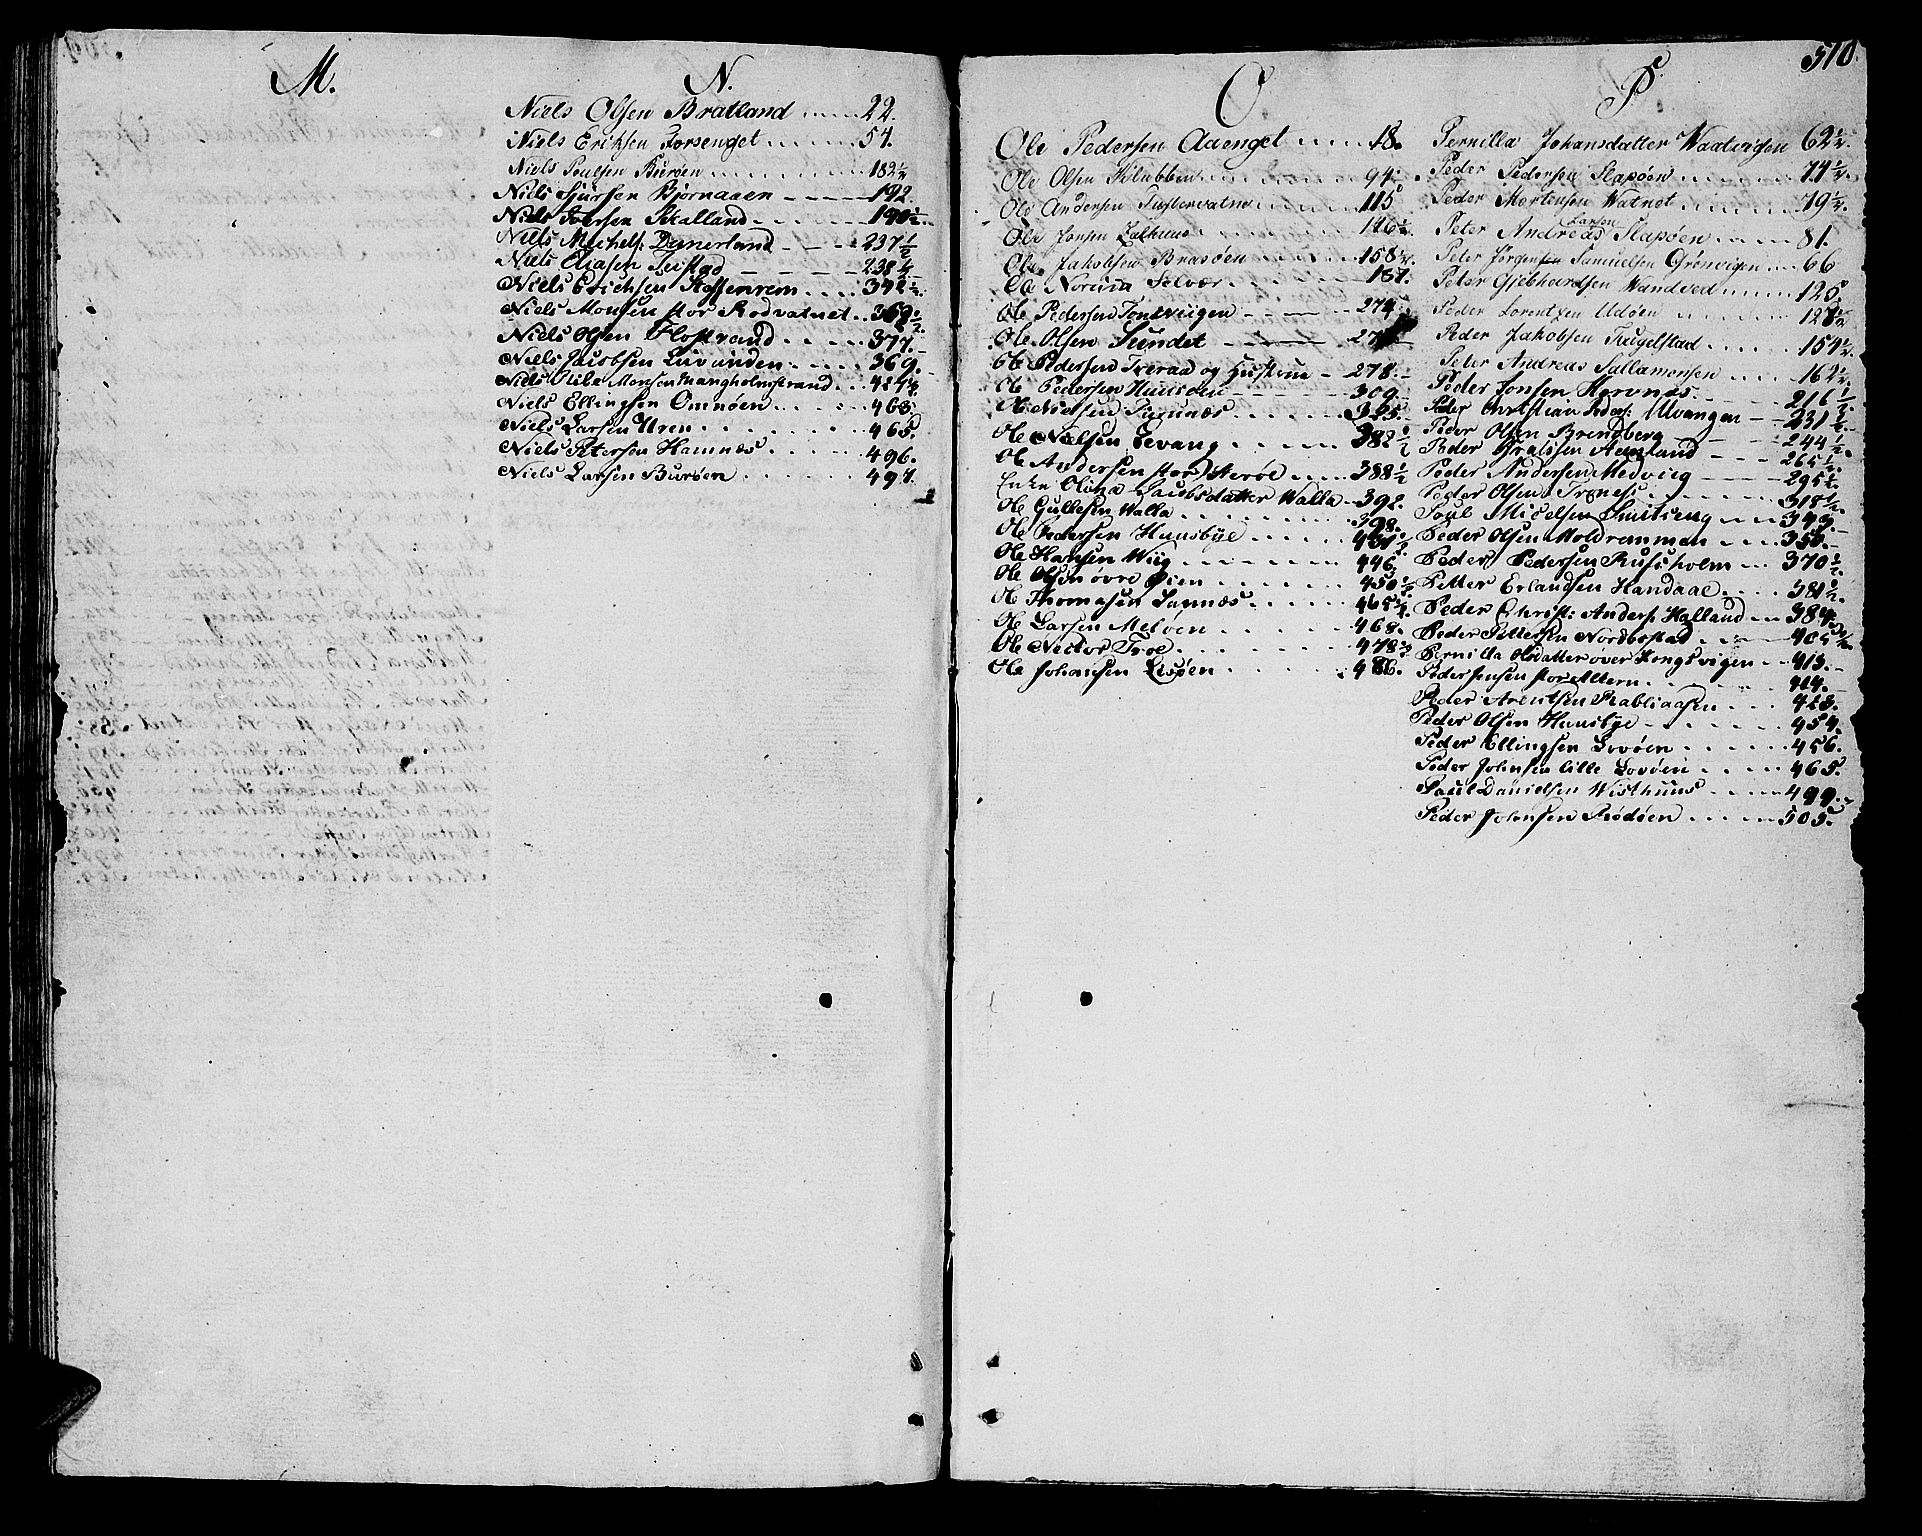 M.
N.
Niels Olsen Bratland 22.
Niels Eriksen Forsenget 54.
Niels Poulsen Burøen 182½
Niels Sjursen Bjornaaen 192.
Niels Iversen Skalland 190½
Niels Michels: Dønerland 237½
Niels Eliasen 238½
Niels Erichsen 342½
Niels Monsen stor Rodvatnet 362½
Niels Olsen Flostrand 377.
Niels Jacobsen Lurunden 369.
Niels Nils Monsen Mangholmstrand 424½
Niels Ellingsen Omnøen 463.
Niels Larsen Uren 465.
Niels Petersen Hamnæs 496.
Niels Larsen Burøen 497.
O
Ole Pedersen Aaenget 18.
Ole Olsen Klubben 94.
Ole Andersen Fustervatne 115
Ole Jonsen 146½
Ole Jakobsen Brasøen 158½
Ole Norum Selvær 187.
Ole Pedersen Tonsviigen 274
Ole Olsen Sundet
Ole Pedersen Tveraa og Hustrue 278.
Ole Pedersen Huusbÿe 309.
Ole Nielsen 325.
Ole Nielsen Levang 382½
Ole Andersen stor Sterøe 388½
Enke Olina Jacobsdatter Walla 392.
Ole Gullesen Walla 398.
Ole Pedersen Huusbÿe 431½
Ole Hansen Wiig 446.
Ole Olsen øvre Øien 450½
Ole Thomasen Sannæs 465½
Ole Larsen Meløen 468.
Ole Nector Troe 478½
Ole Johansen Lisøen 486.
P.
510.
Pernilla Johansdatter Waatvigen 62½
Peder Pedersen Slapøen 77½
Peder Mortensen Watnet 79½
Larsen
Peter Andreas Slapøen 81.
Peter Jørgensen Samuelsen Grönvigen 66
Peter Gjebhardsen Wandved 125
Peder Lorentzen Udøen 128½
Peder Jakobsen Fugelstad 154½
Peter Andreas Sallamonsen 162½
Peder Jonsen Hornæs 216½
Peder Christian Peders: Ulvangen 231½
Peder Olsen Brendberg 244½
Peder Aanland 265½
Peder Andersen Medviig 295½
Peder Olsen Trones 318½
Poul Mickelsen Smitseng 349.
Peder Olsen Moldremmen 350.
Peder Pedersen Rufsholm 370½
Petter Erlandsen Handaae 381½
Peder Christ: Anders: Halland 384
Peder Pettersen Nordbostad 405½
Pernilla Olsdatter øver Kongsvigen 413.
Peder Jensen stor Altern 414.
Peder Arentsen Rabliaasen 423.
Peder Olsen Huusbye 454.
Peder Ellingsen Lovøen 456.
Peder Johnsen lille Lovøen 465.
Paul Danielsen Wisthuus 499.
Peder Johnsen Rødøen 505.